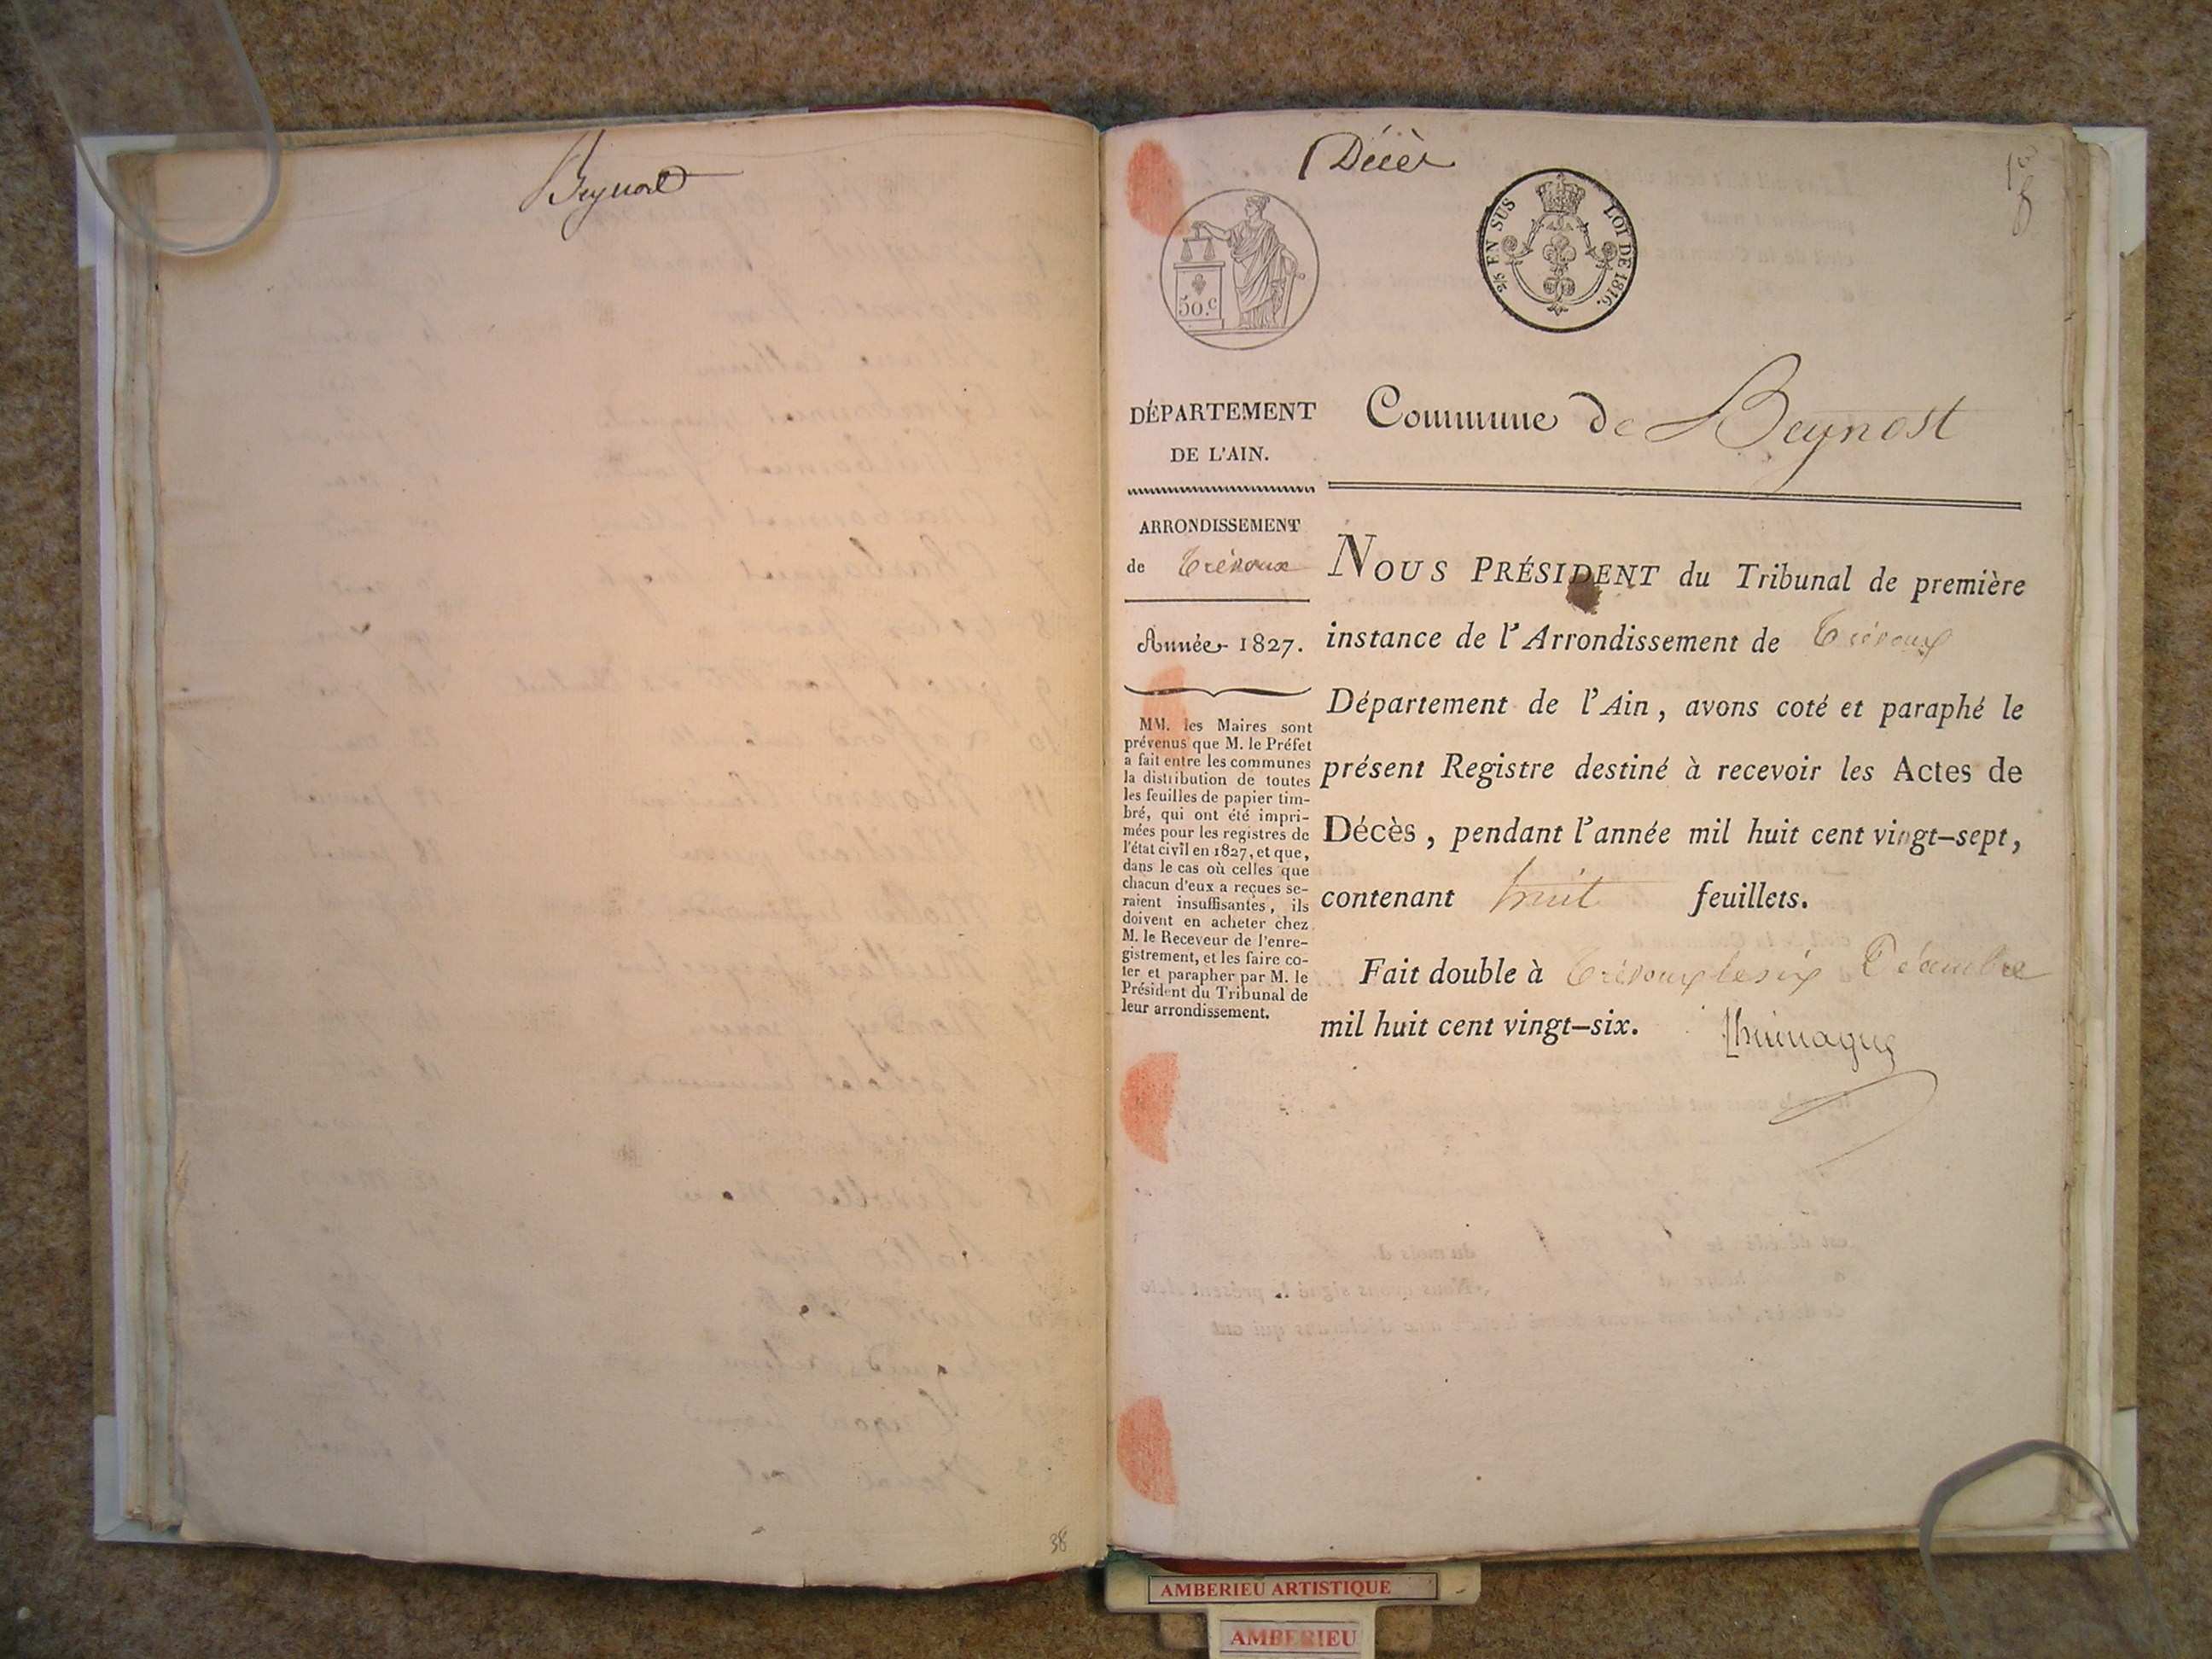 Beynost
38
Décès
50.c
2/5 EN SUS
LOI DE 1816.
DÉPARTEMENT
DE L'AIN.
ARRONDISSEMENT
de Trévoux
Année 1827.
MM. les Maires sont
prévenus que M. le Préfet
a fait entre les communes
la distribution de toutes
les feuilles de papier tim-
bré, qui ont été impri-
mées pour les registres de
l'état civil en 1827, et que,
dans le cas où celles que
chacun d'eux a reçues se-
raient insuffisantes, ils
doivent en acheter chez
M. le Receveur de l'enre-
gistrement, et les faire co-
ter et parapher par M. le
Président du Tribunal de
leur arrondissement.
Commune de Beynost
NOUS PRÉSIDENT du Tribunal de première
instance de l'Arrondissement de Trévoux
Département de l'Ain, avons coté et paraphé le
présent Registre destiné à recevoir les Actes de
Décès, pendant l'année mil huit cent vingt-sept,
contenant huit feuillets.
Fait double à Trévoux le six Décembre
mil huit cent vingt-six.
AMBERIEU ARTISTIQUE
AMBERIEU